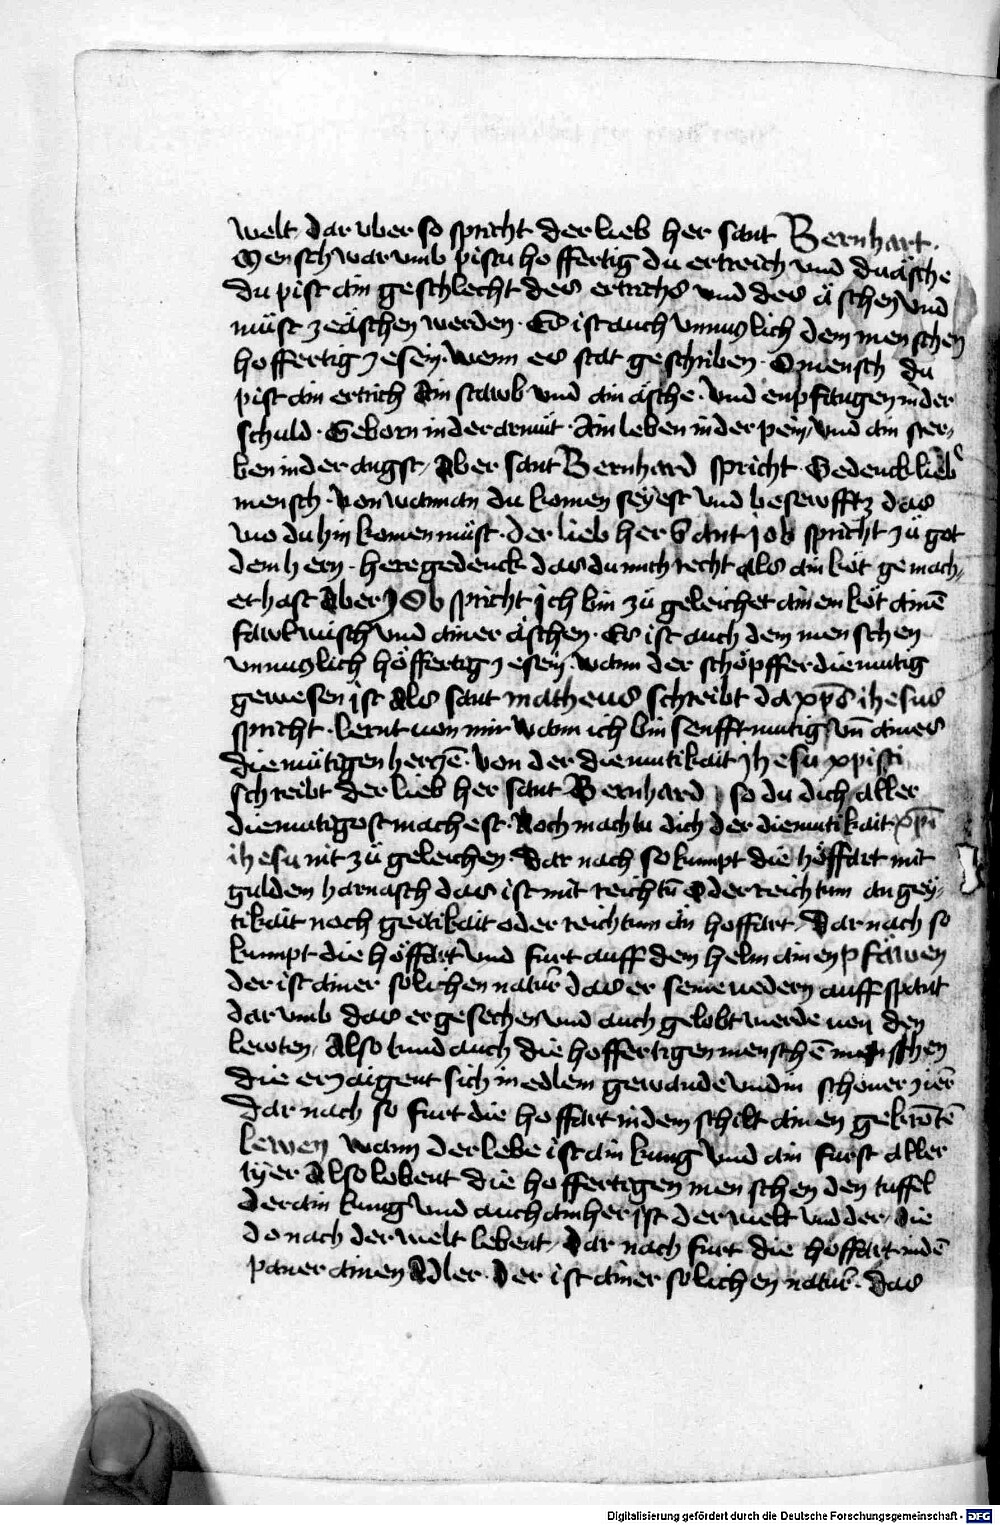 welt / dar vber so spricht der lieb her sant Bernhart ·
O Mensch warumb pistu hoffertig du ertreich vnd du äsche
du pist ain geschlecht des ertrichs vnd des äschen vnd
müst ze äschen werden · Es ist auch vnmuglich dem menschen
hoffertig zesein · wenn es stat geschriben · O mensch du
pist ain ertrich Ain stawb vnd ain äsche · vnd enpfangen in der
schuld · Geborn in der armüt · Ain leben in der pein / vnd ain ster¬
ben in der angst / Aber sant Bernhard spricht · Gedenck lieb
mensch · von wannan du komen seyest vnd besewfftz das
wo du hin komen müst · der lieb her Sant job spricht zü got
dem hern · here gedenck das du mich recht als ain köt gemach¬
et hast Aber JOb spricht ich bin zü geleichet ainem köt ainē
fawlwisch vnd ainer äschen · Es ist auch dem menschen
vnmuglich höffertig zesein · wann der schöpffer diemutig
gewesen ist Als sant matheus schreibt da xp̄s ihesus
spricht · lernt von mir wann ich bin senfftmutig vn̄ aines
diemütigen herczē · von der diemutikait jhesu xpisti
schreibt der lieb her sant Bernhard so du dich aller
diemutigost machest · Noch machtu dich der diemutikait xp̄i
ihesu nit zü geleichen · Dar nach so kumpt die höffart mit
guldem harnasch das ist mit reichtū Oder reichtum an grey¬
tikait noch geitikait oder reichtum än hoffart / Dar nach so
kumpt die höffart vnd furt auff dem helm ainen pfäwen
der ist ainer solichen natur das er seine vedern auff spant
dar vmb das er gesechen vnd auch gelobt werde von den
lewten / Also tund auch die hoffertigen menschē menschen
die erzaigent sich in edlem gewande vnd in schöner zier
Dar nach so furt die hoffart in dem schilt ainen gekrōtē
lewen wann der lebe ist ain kung vnd ain furst aller
tyer Also lobent die hoffertigen menschen den tuffel
der ain kung vnd auch ain her ist der welt vnd der / die
do nach der welt lebent / Dar nach furt die hoffart in dē
paner ainen Adler · Der ist ainer solichen natur · das
Digitalisierung gefördert durch die Deutsche Forschungsgemeinschaft - DFG